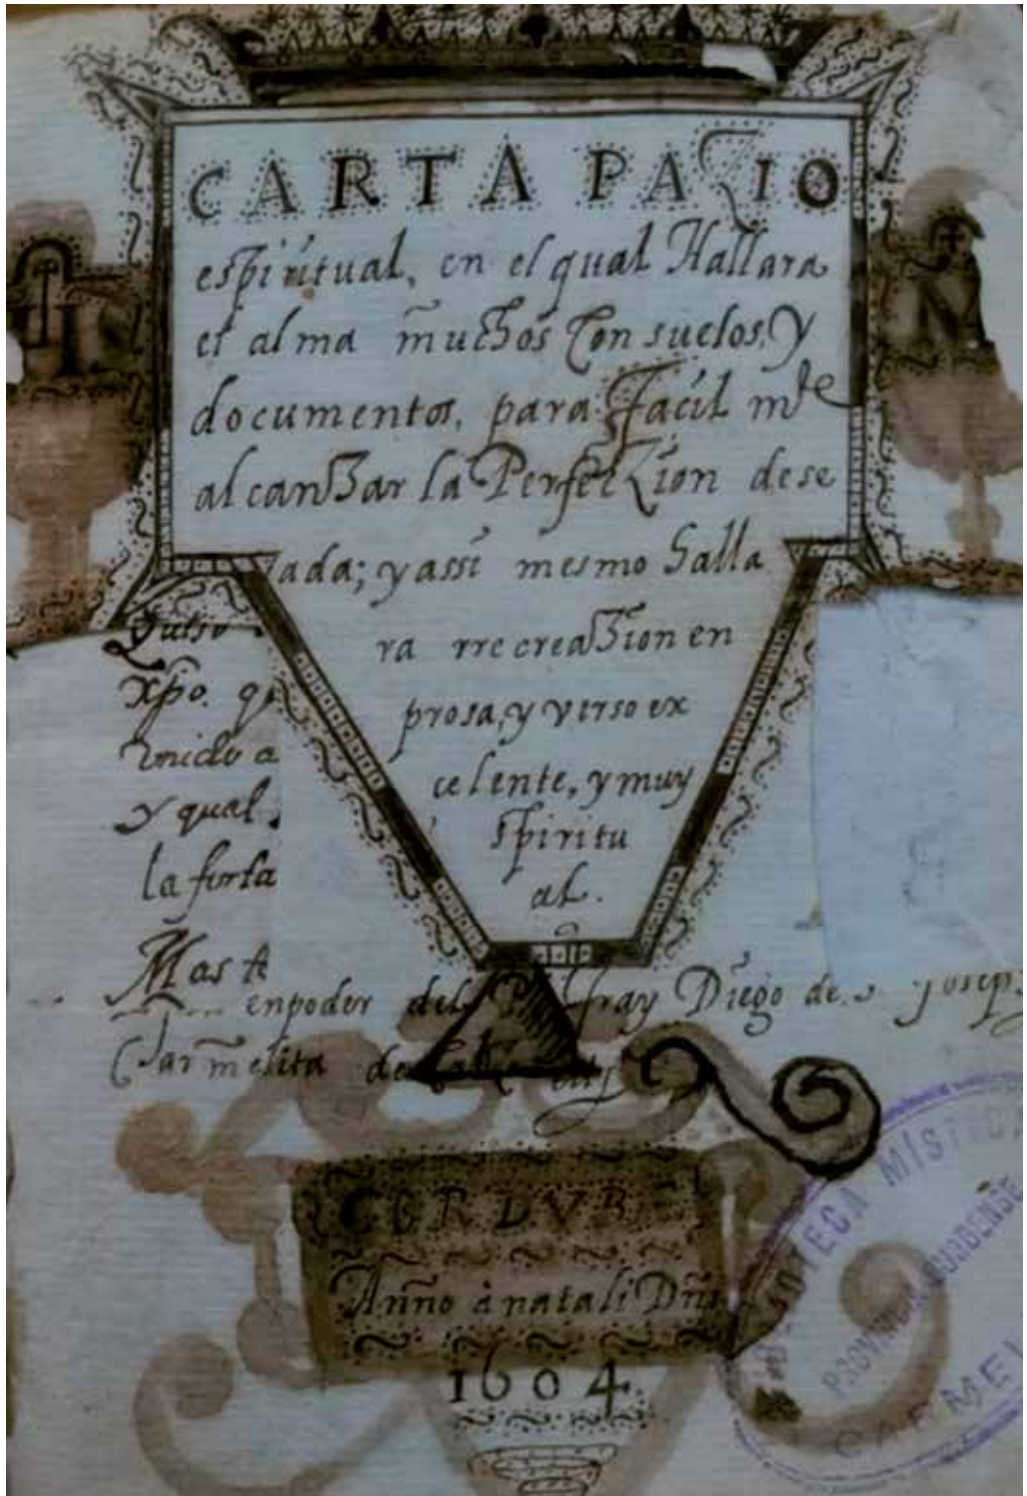 CARTAPAÇIO
espiritual, en el qual Hallara
el alma muchos Consuelos, Y
documentos, para façil mte
alcanzar la Perfeçion dese
ada; y assi mesmo halla
ra rrecreazion en
prosa, y verso ex
celente, y muy
spiritu
al.
xpo. q
vnido a
y qual
la fuerza
Mas
enpoder del P. fray Diego de S. Joseph
Carmelita
CORDVB
Anño á natali Dñi
1604.
MÍSTICA
CARMEL